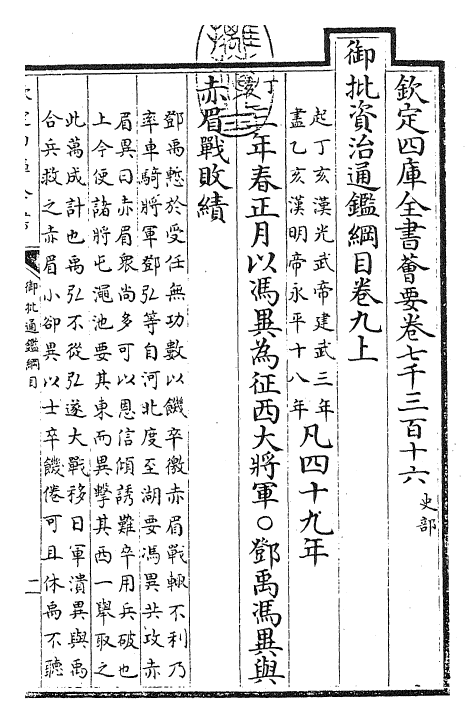 欽定四庫全書薈要卷七千三百十六 史部
御批資治通鑑綱目卷九上
起丁亥漢光武帝建武三年
盡乙亥漢明帝永平十八年 凡四十九年
丁亥 三年春正月以馮異為征西大將軍〇鄧禹馮異與
赤眉戰敗績
鄧禹慙於受任無功數以饑卒徼赤眉戰輒不利乃
率車騎將軍鄧弘等自河北度至湖要馮異共攻赤
眉異曰赤眉衆尚多可以恩信傾誘難卒用兵破也
上今使諸將屯澠池要其東而異擊其西一舉取之
此萬成計也禹弘不從弘遂大戰移日軍潰異與禹
合兵救之赤眉小卻異以士卒饑倦可且休禹不聽
御批通鑑綱目